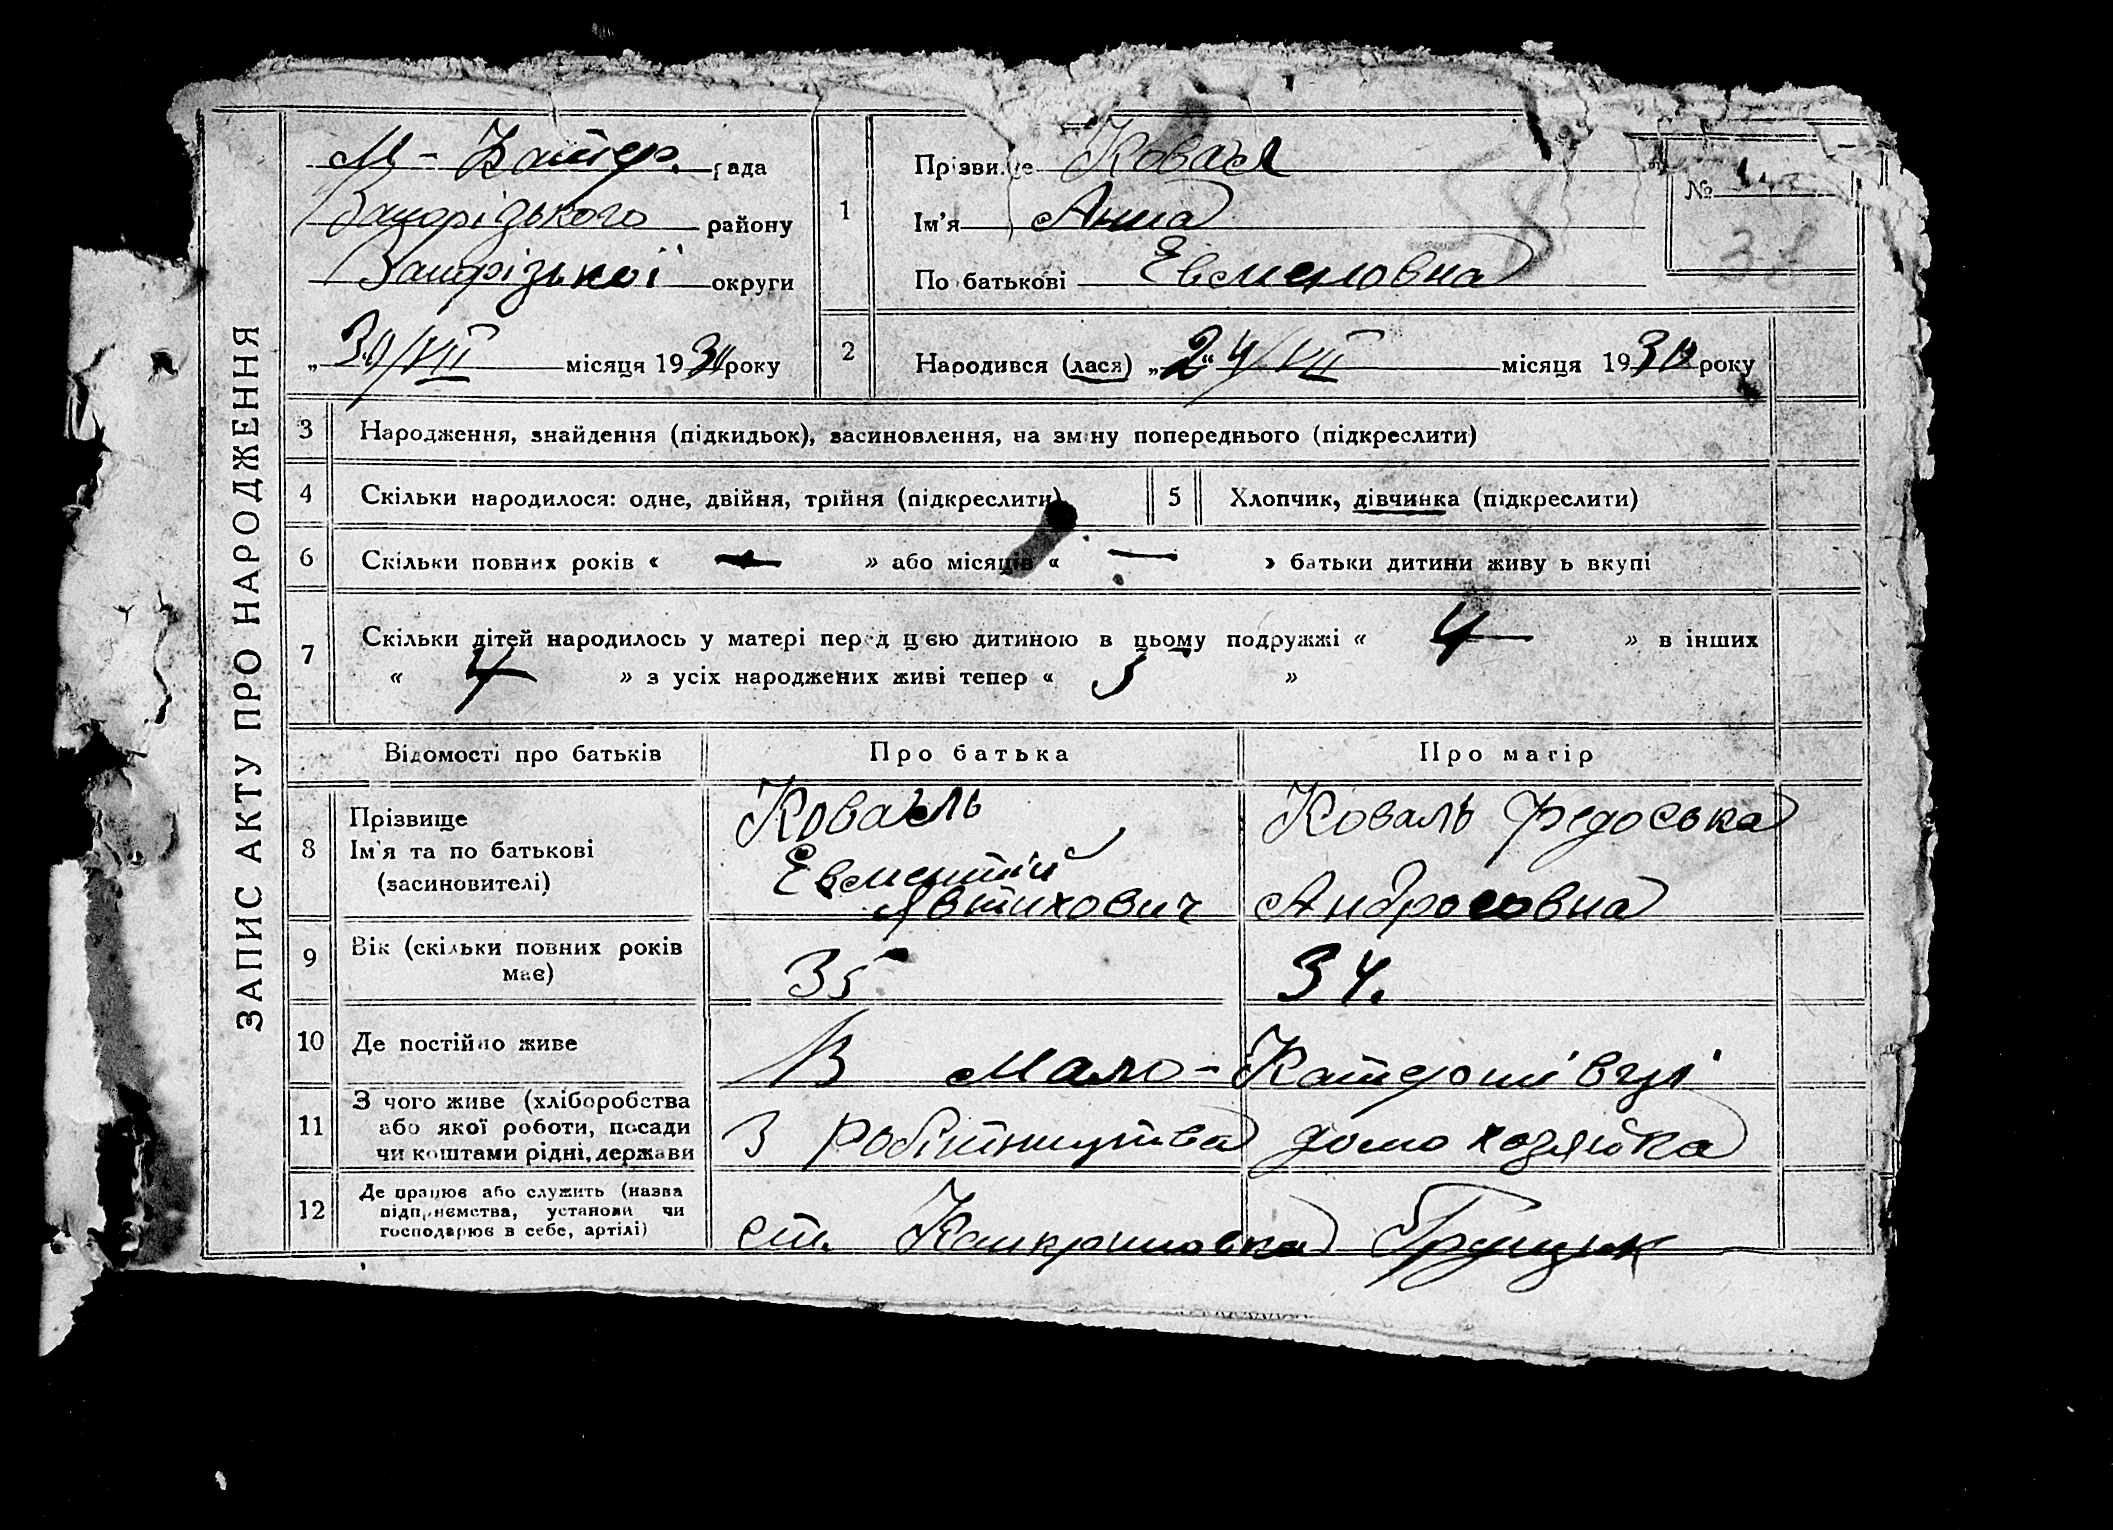 ЗАПИС АКТУ ПРО НАРОДЖЕННЯ
М- Катер. рада
Запорізького району
Запорізької округи
„30/VII місяця 1930 року
1
Прізвище Коваль
Ім'я Анна
По батькові Евменовна
№
38
58
2
Народився (лася) „24/VII місяця 1930 року
3 Народження, знайдення (підкидьок), засиновлення, на зміну попереднього (підкреслити)
4 Скільки народилося: одне, двійня, трійня (підкреслити)
5 Хлопчик, дівчинка (підкреслити)
6 Скільки повних років « — » або місяців « — » батьки дитини живуть вкупі
7 Скільки дітей народилось у матері перед цією дитиною в цьому подружжі « 4 » в інших
« 4 » з усіх народжених живі тепер « 5 »
Відомості про батьків Про батька Про матір
8 Прізвище
Ім'я та по батькові
(засиновителі)
Коваль
Евментій
Автихович
Коваль Федоська
Андросовна
9 Вік (скільки повних років
має)
35
34.
10 Де постійно живе
В Мало-Катеринівці
11 З чого живе (хліборобства
або якої роботи, посади
чи коштами рідні, держави
З робітництва
домохозяйка
12 Де працює або служить (назва
підприємства, установи чи
господарює в себе, артілі)
ст. Канкриновка Грущик